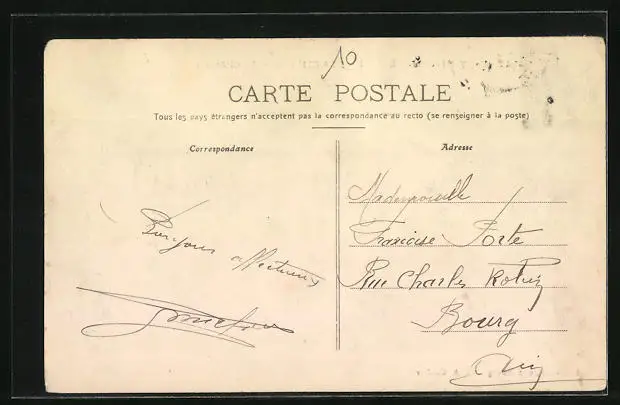 10
CARTE POSTALE
Tous les pays étrangers n'acceptent pas la correspondance au recto (se renseigner à la poste)
Correspondance
Adresse
Bonjour affectueux
Mademoiselle
Françoise Forte
Rue Charles Robin
Bourg
Ain